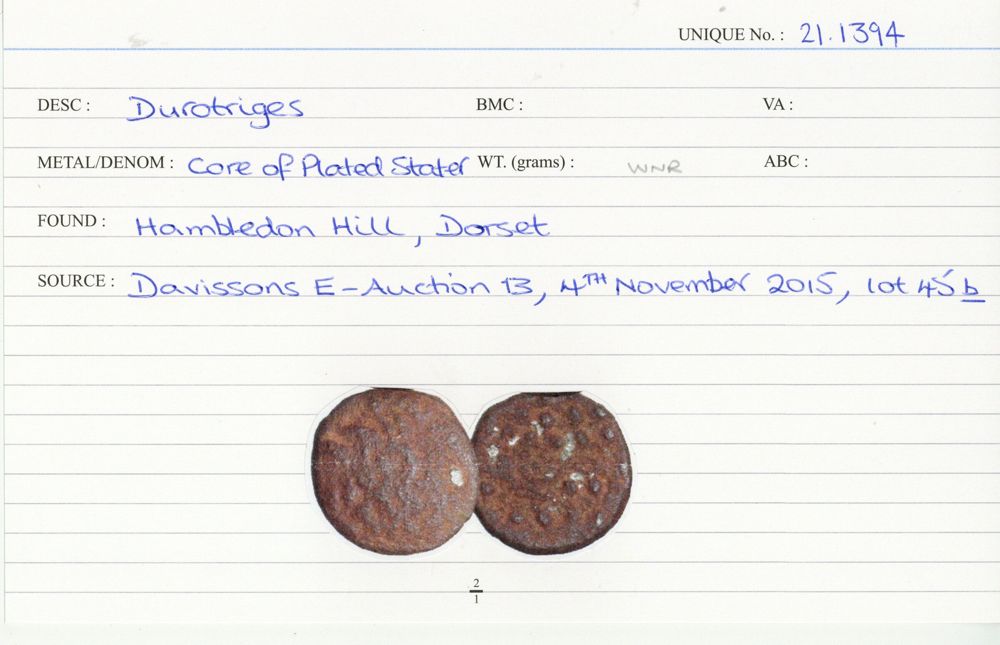 UNIQUE No. : 21.1394
DESC : Durotriges BMC : VA :
METAL/DENOM : Core of Plated Stater WT. (grams) : WNR ABC :
FOUND : Hambledon Hill, Dorset
SOURCE : Davissons E-Auction 13, 4TH November 2015, lot 45b
2
1